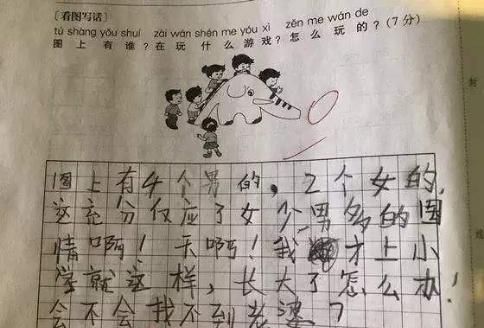 〔看图写话〕
tú shàng yǒu shuí zài wán shén me yóu xì zěn me wán de
图上有谁？在玩什么游戏？怎么玩的？(7分)
图上有4个男的，2个女的，
这充分反应了女少男多的国
情啊！天啊！我才上小
学就这样，长大了怎么办！
会不会找不到老婆？